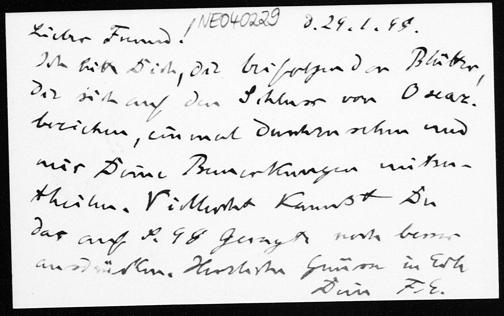 NE040229
d. 29.1.98.
Lieber Freund!
Ich bitte Dich, die beifolgenden Blätter,
die sich auf den Schluss von Oscar
beziehen, einmal durchzusehen und
mir Deine Bemerkungen mitzu-
theilen. Vielleicht kannst Du
das auf S. 98 Gesagte noch besser
ausdrücken. Herzliche Grüsse in Eile
Dein F. E.